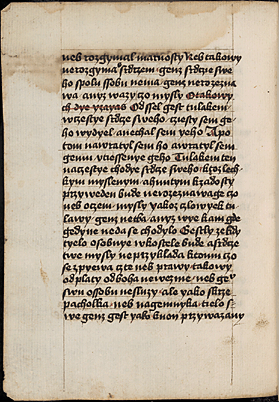 neb rozgymal marnosty Neb takowy
nerozgyma srdczem genz srdcze swe
ho spolu ssobu nema genz nerozezna
wa anyz wazy czo mysly Otakowy
ch dye yzayas Odssel gest tulakem
wczestye srdcze sweho. czesty sem ge
ho wydyel. anechal sem geho Apo
tom nawratyl sem ho awratyl sem
gemu vtiessenye geho Tulakem ten
naczestye chodye srdcze sweho. ktoz lech
kym myslenym ahnutym kradosty
przyweden bude nerozeznawage czo
neb oczem mysly yakoz czlowyek tu
lawy. genz netba anyz wye kam gde
gedyne neda se chodylo Gestly ze kdy
tyelo osobnye wkostele bude asrdcze
twe mysly neprzyklada ktomu czo
se zpyewa czte neb prawy takowy
odplaty odboha newezme. neb
swu ossobu nesluzy ale yako skrze
pacholka. neb nagemnyka tielo s
we genz gest yako kuon przywazany